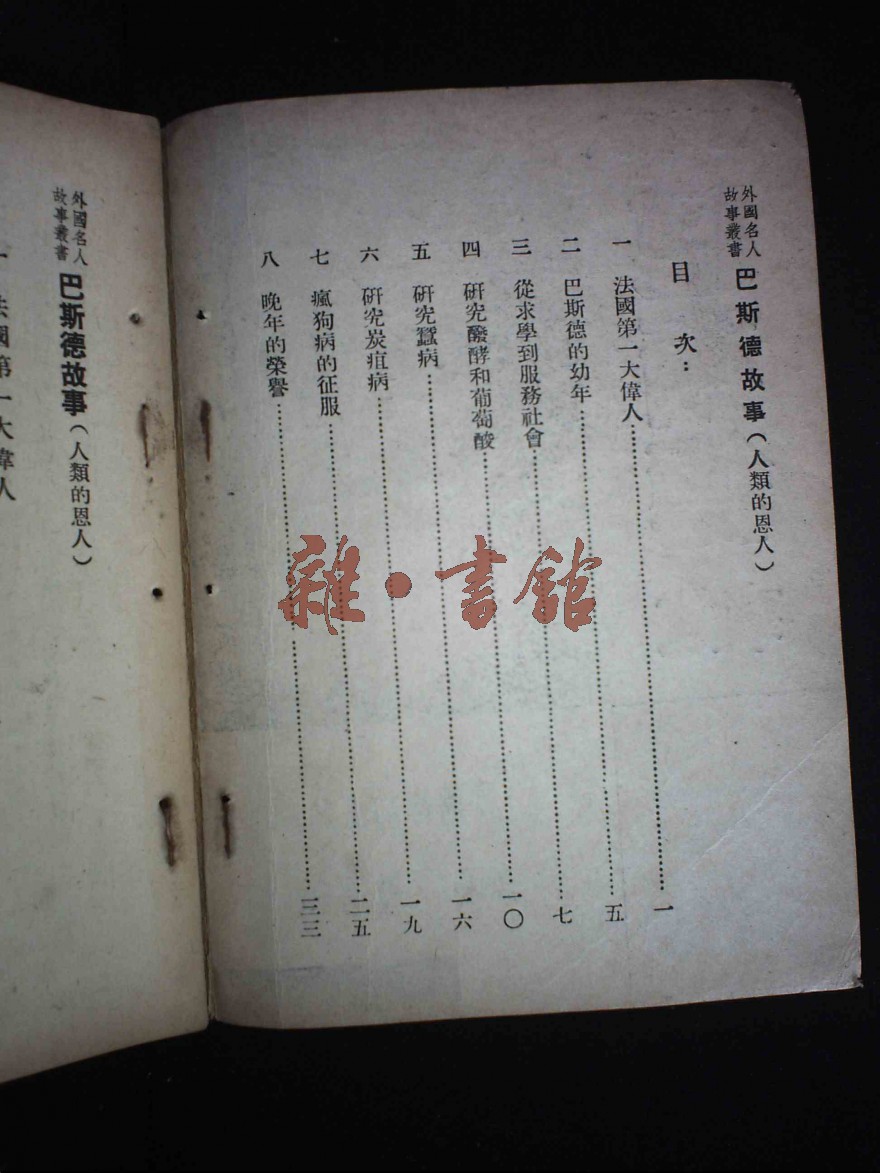 外國名人
故事叢書
巴斯德故事(人類的恩人)
目次:
一 法國第一大偉人……一
二 巴斯德的幼年……五
三 從求學到服務社會……七
四 研究醱酵和葡萄酸……一〇
五 研究蠶病……一六
六 研究炭疽病……一九
七 瘋狗病的征服……二五
八 晚年的榮譽……三三
外國名人
故事叢書
巴斯德故事(人類的恩人)
一 法國第一大偉人
雜·書館